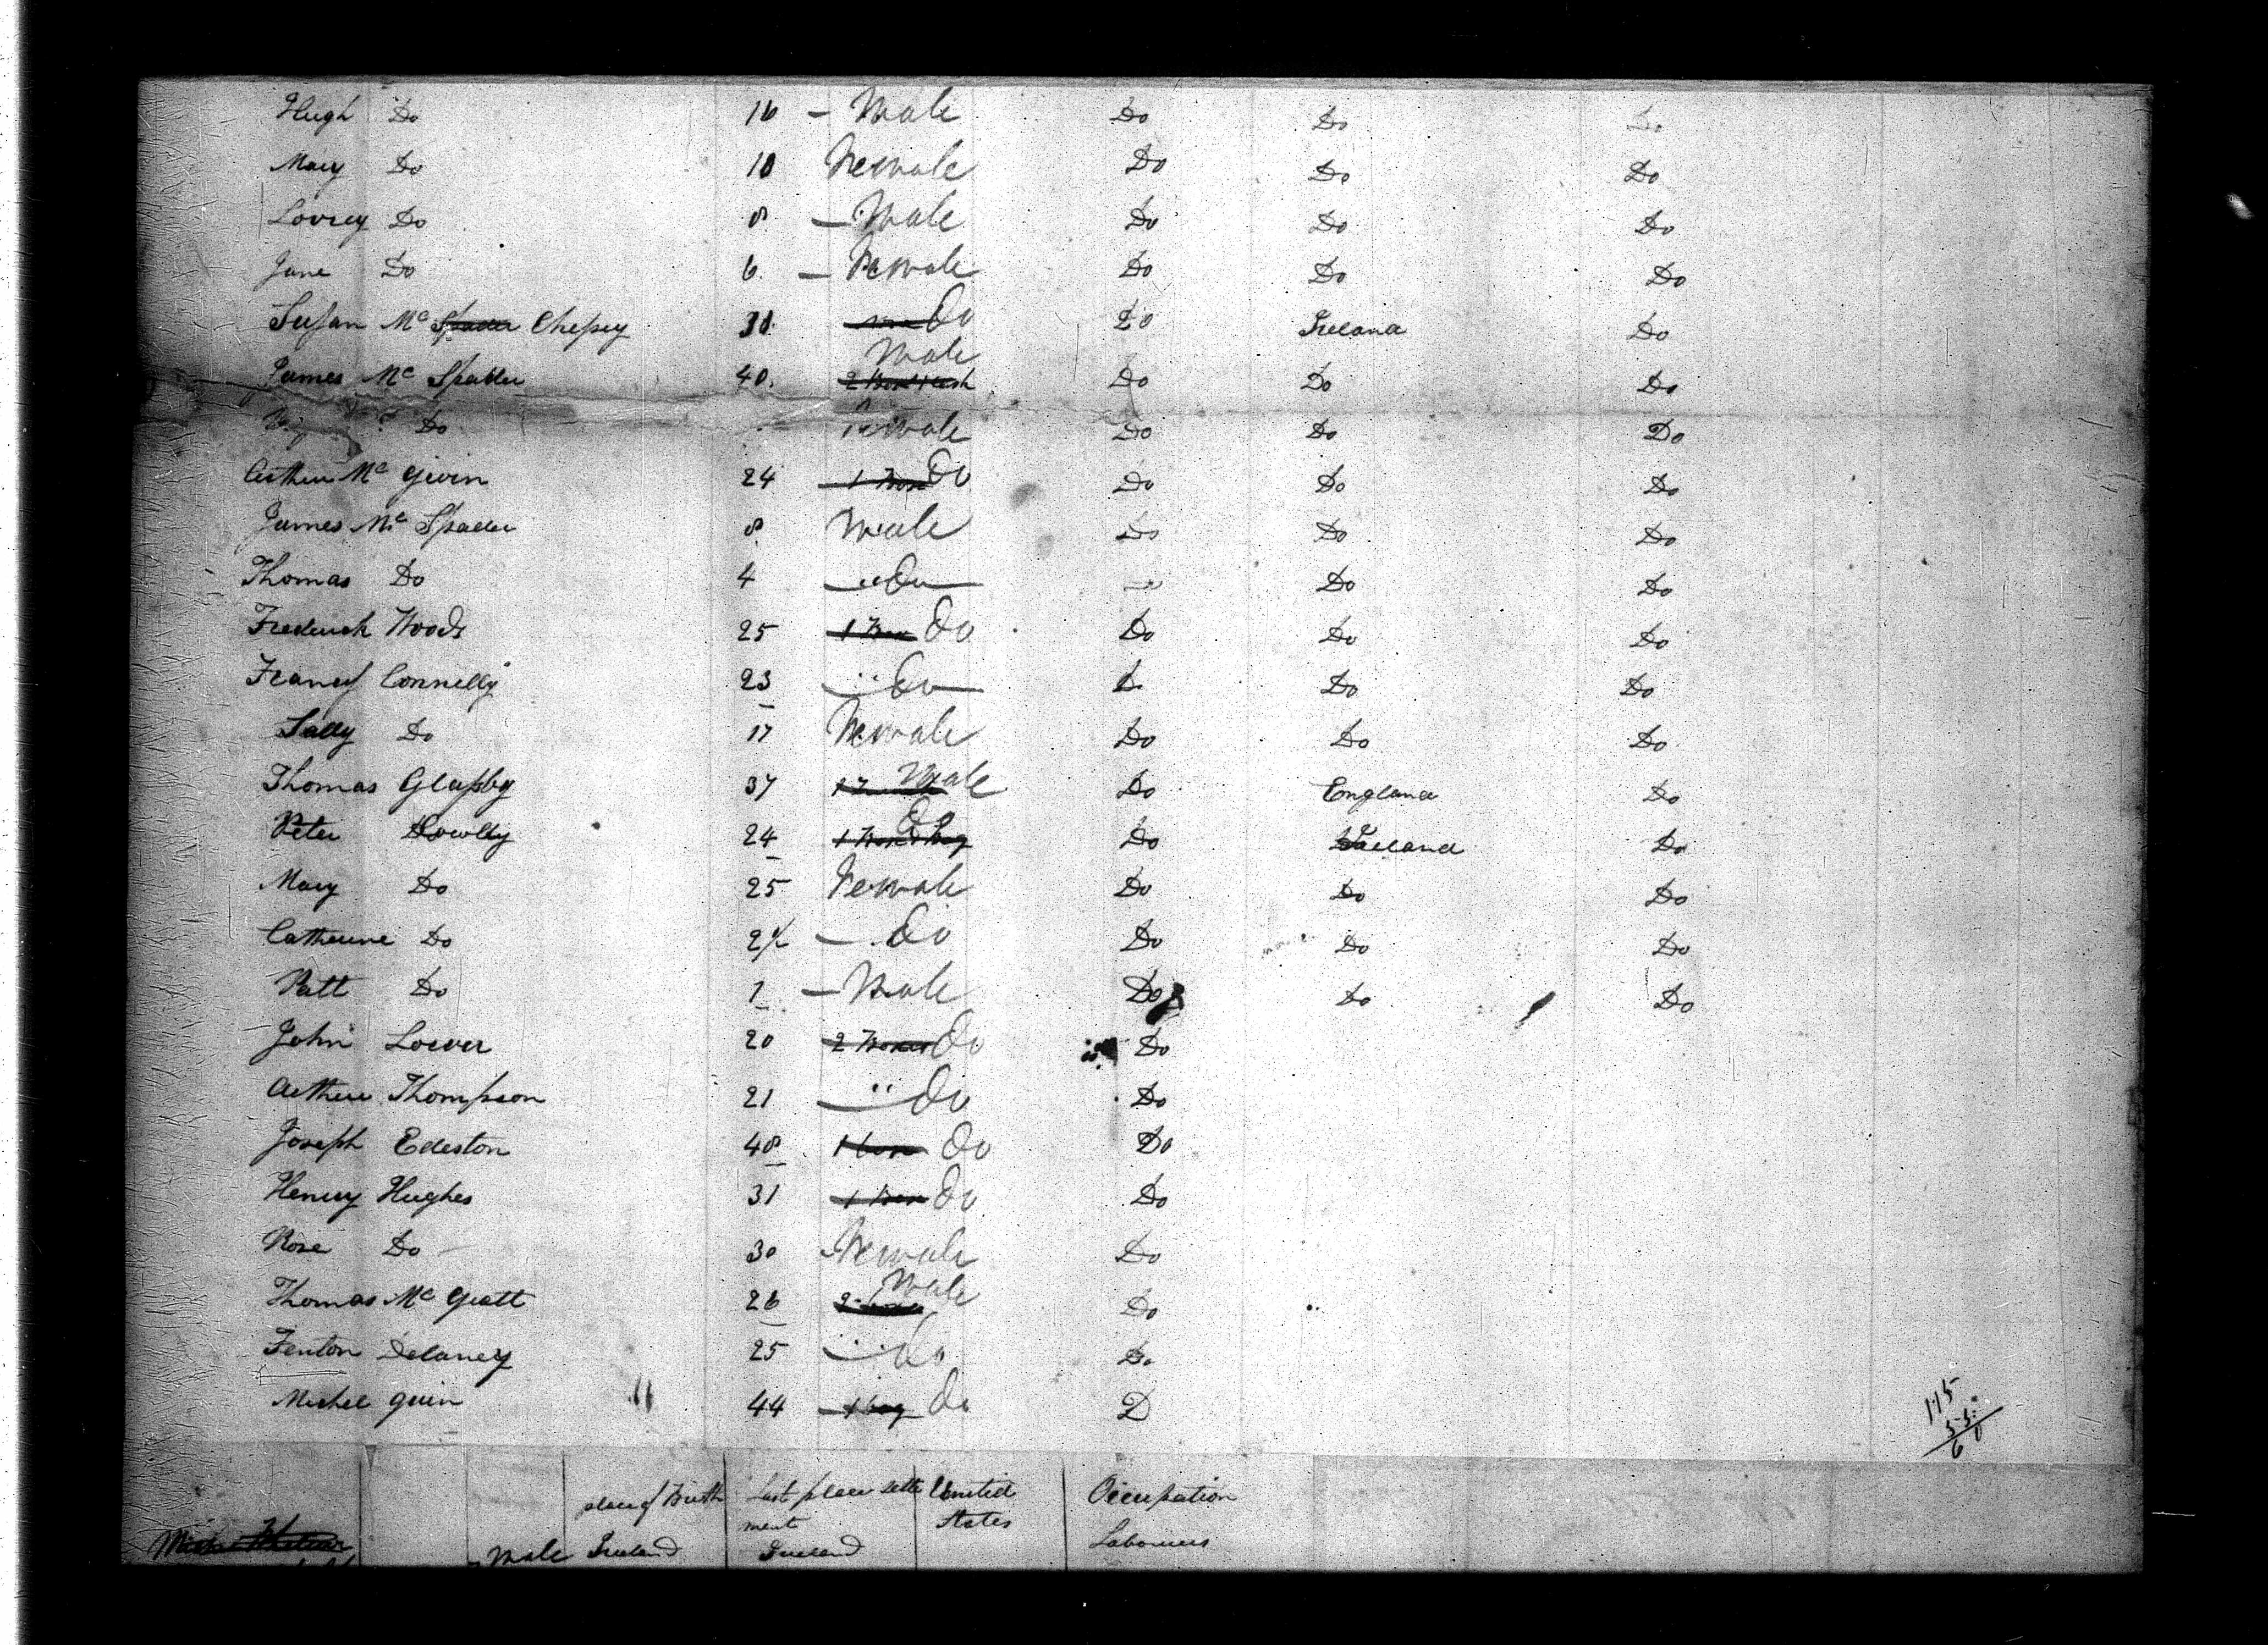 Hugh Do 16 - Male Do Do Do
Mary Do 10 Female Do Do Do
Lovrey Do 8 - Male Do Do Do
Jane Do 6. - Female Do Do Do
Susan Mc Spader Chessey 31. Do Do Ireland Do
James Mc Spader 40. Male Do Do Do
Do Female Do Do Do
Arthur Mc Givin 24 1 Box Do Do Do Do
James Mc Spader 8 Male Do Do Do
Thomas Do 4 " Do Do Do
Frederick Woods 25 1 Box Do Do Do Do
Francis Connelly 23 " Do D. Do Do
Sally Do 17 Female Do Do Do
Thomas Glassby 37 Male Do England Do
Peter Dowlly 24 1 Box & bag Do Do Ireland Do
Mary Do 25 Female Do Do Do
Catherine Do - Do Do Do Do
Patt Do 1 - Male Do Do Do
John Loever 20 2 Boxes Do Do
Arthur Thompson 21 " Do Do
Joseph Edeston 48 1 box Do Do
Henry Hughes 31 1 Box Do Do
Rose Do 30 Female Do
Thomas Mc Gratt 26 Male Do
Fenton Delaney 25 " Do Do
Michel Quin 44 1 bag Do D
115
55
60
place of Birth Last place settle United Occupation
ment States
Male Ireland Ireland Labourers